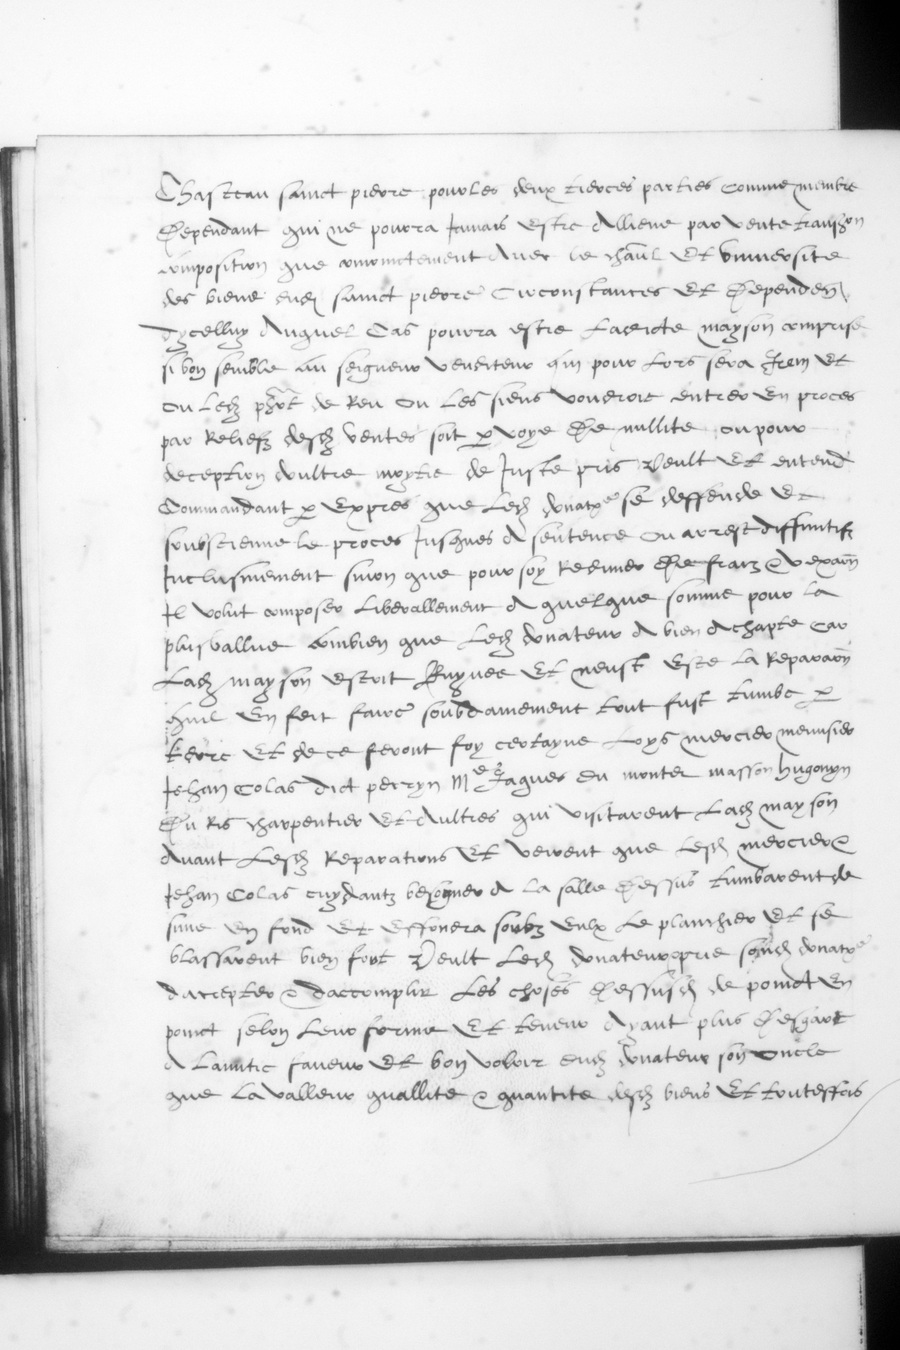 Chasteau sainct pierre pour les deux tierces parties comme membre
Dependant qui ne pourra Jamais estre alliene par vente transon
composition que conioinctement avec le chaul Et université
des biens dud sainct pierre Circonstances Et Dependen
dycelluy Auquel Cas pourra estre Ladicte mayson comprise
si bon semble au seigneur venditeur qui pour lors sera Item Et
ou Led de Reu ou Les siens vouldroit entrer En proces
par Relief desd ventes soit p voye De nullite ou pour
deception doultre moytie de Juste pris Veult Et entend
Commandant p Expres que Led donatre se deffende Et
soubstienne le proces Jusques a sentence ou arrest diffinitif
Inclusivement sinon que pour soy Redimer De fraiz & vexaon
Il volut composer Liberallement a quelque somme pour la
plusvallue combien que Led donateur a bien achapte Car
Lad mayson estoit Ruynee Et neust este La Reparaon
quil En feit faire soubdainement tout fust tumbe p
terre Et de ce feront foy certayne Loys mercier menusier
Jehan Colas dict perryn Me Jaques du montet masson hugonyn
Du Ris charpentier Et Aultres qui visitarent Lad mayson
avant Lesd Reparations Et veirent que Lesd mercier &
Jehan Colas cuydantz besogner a la salle Dessus tumbarent de
sime En fond Et Effondra soubz Eulx Le planchier Et se
blassarent bien fort Veult Led donateur & prie sond donatre
daccepter & daccomplir Les choses Dessusd de poinct En
poinct selon Leur forme Et teneur Ayant plus Desgart
A Lamitie faveur Et bon voloir dud donateur son oncle
que La valleur quallite & quantite desd biens Et touteffois